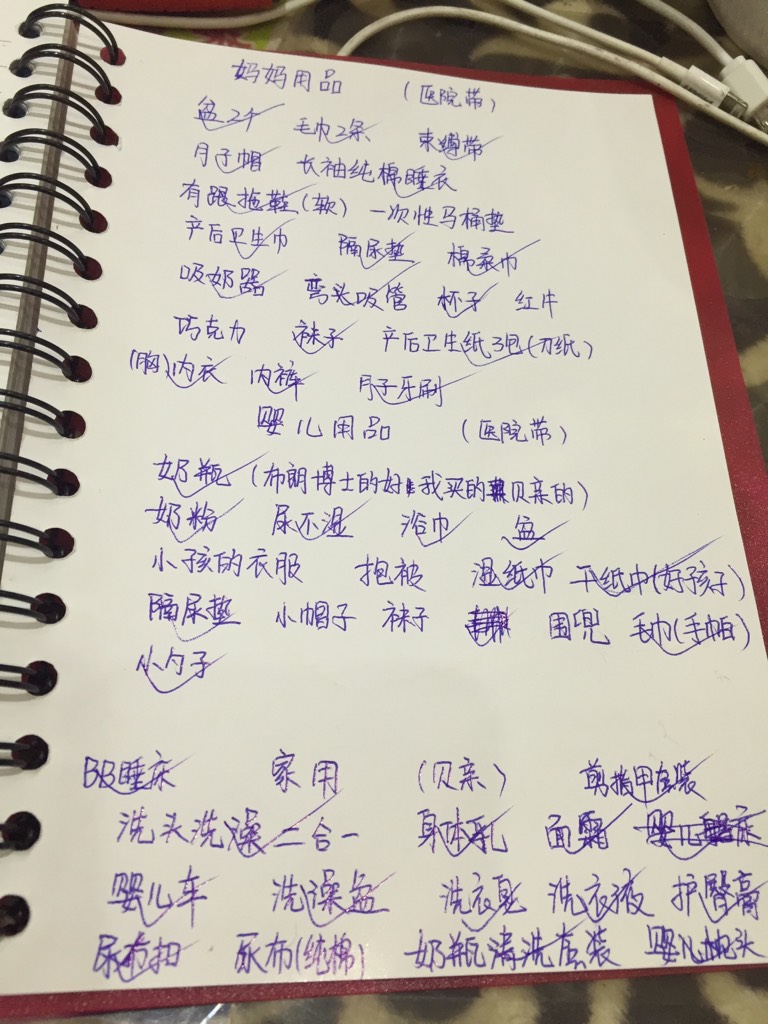 妈妈用品 (医院带)
盆2个 毛巾2条 束缚带
月子帽 长袖纯棉睡衣
有跟拖鞋(软) 一次性马桶垫
产后卫生巾 隔尿垫 棉柔巾
吸奶器 弯头吸管 杯子 红牛
巧克力 袜子 产后卫生纸3包(刀纸)
(胸)内衣 内裤 月子牙刷
婴儿用品 (医院带)
奶瓶 (布朗博士的好 我买的贝亲的)
奶粉 尿不湿 浴巾 盆
小孩的衣服 抱被 湿纸巾 干纸巾(好孩子)
隔尿垫 小帽子 袜子 围兜 毛巾(手帕)
小勺子
BB睡床 家用 (贝亲) 剪指甲套装
洗头洗澡二合一 身体乳 面霜 婴儿床
婴儿车 洗澡盆 洗衣皂 洗衣液 护臀膏
尿布扣 尿布(纯棉) 奶瓶清洗套装 婴儿枕头